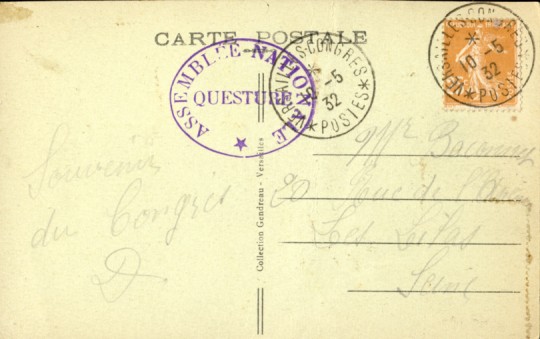 CARTE POSTALE
ASSEMBLÉE NATIONALE
QUESTURE
VERSAILLES CONGRES
* 10 -5
32
* POSTES *
VERSAILLES CONGRES
*
10 -5
32
* POSTES *
Souvenir
du Congrès
D.
Collection Gendreau - Versailles
Mlle
20 Rue de
Les Lilas
Seine